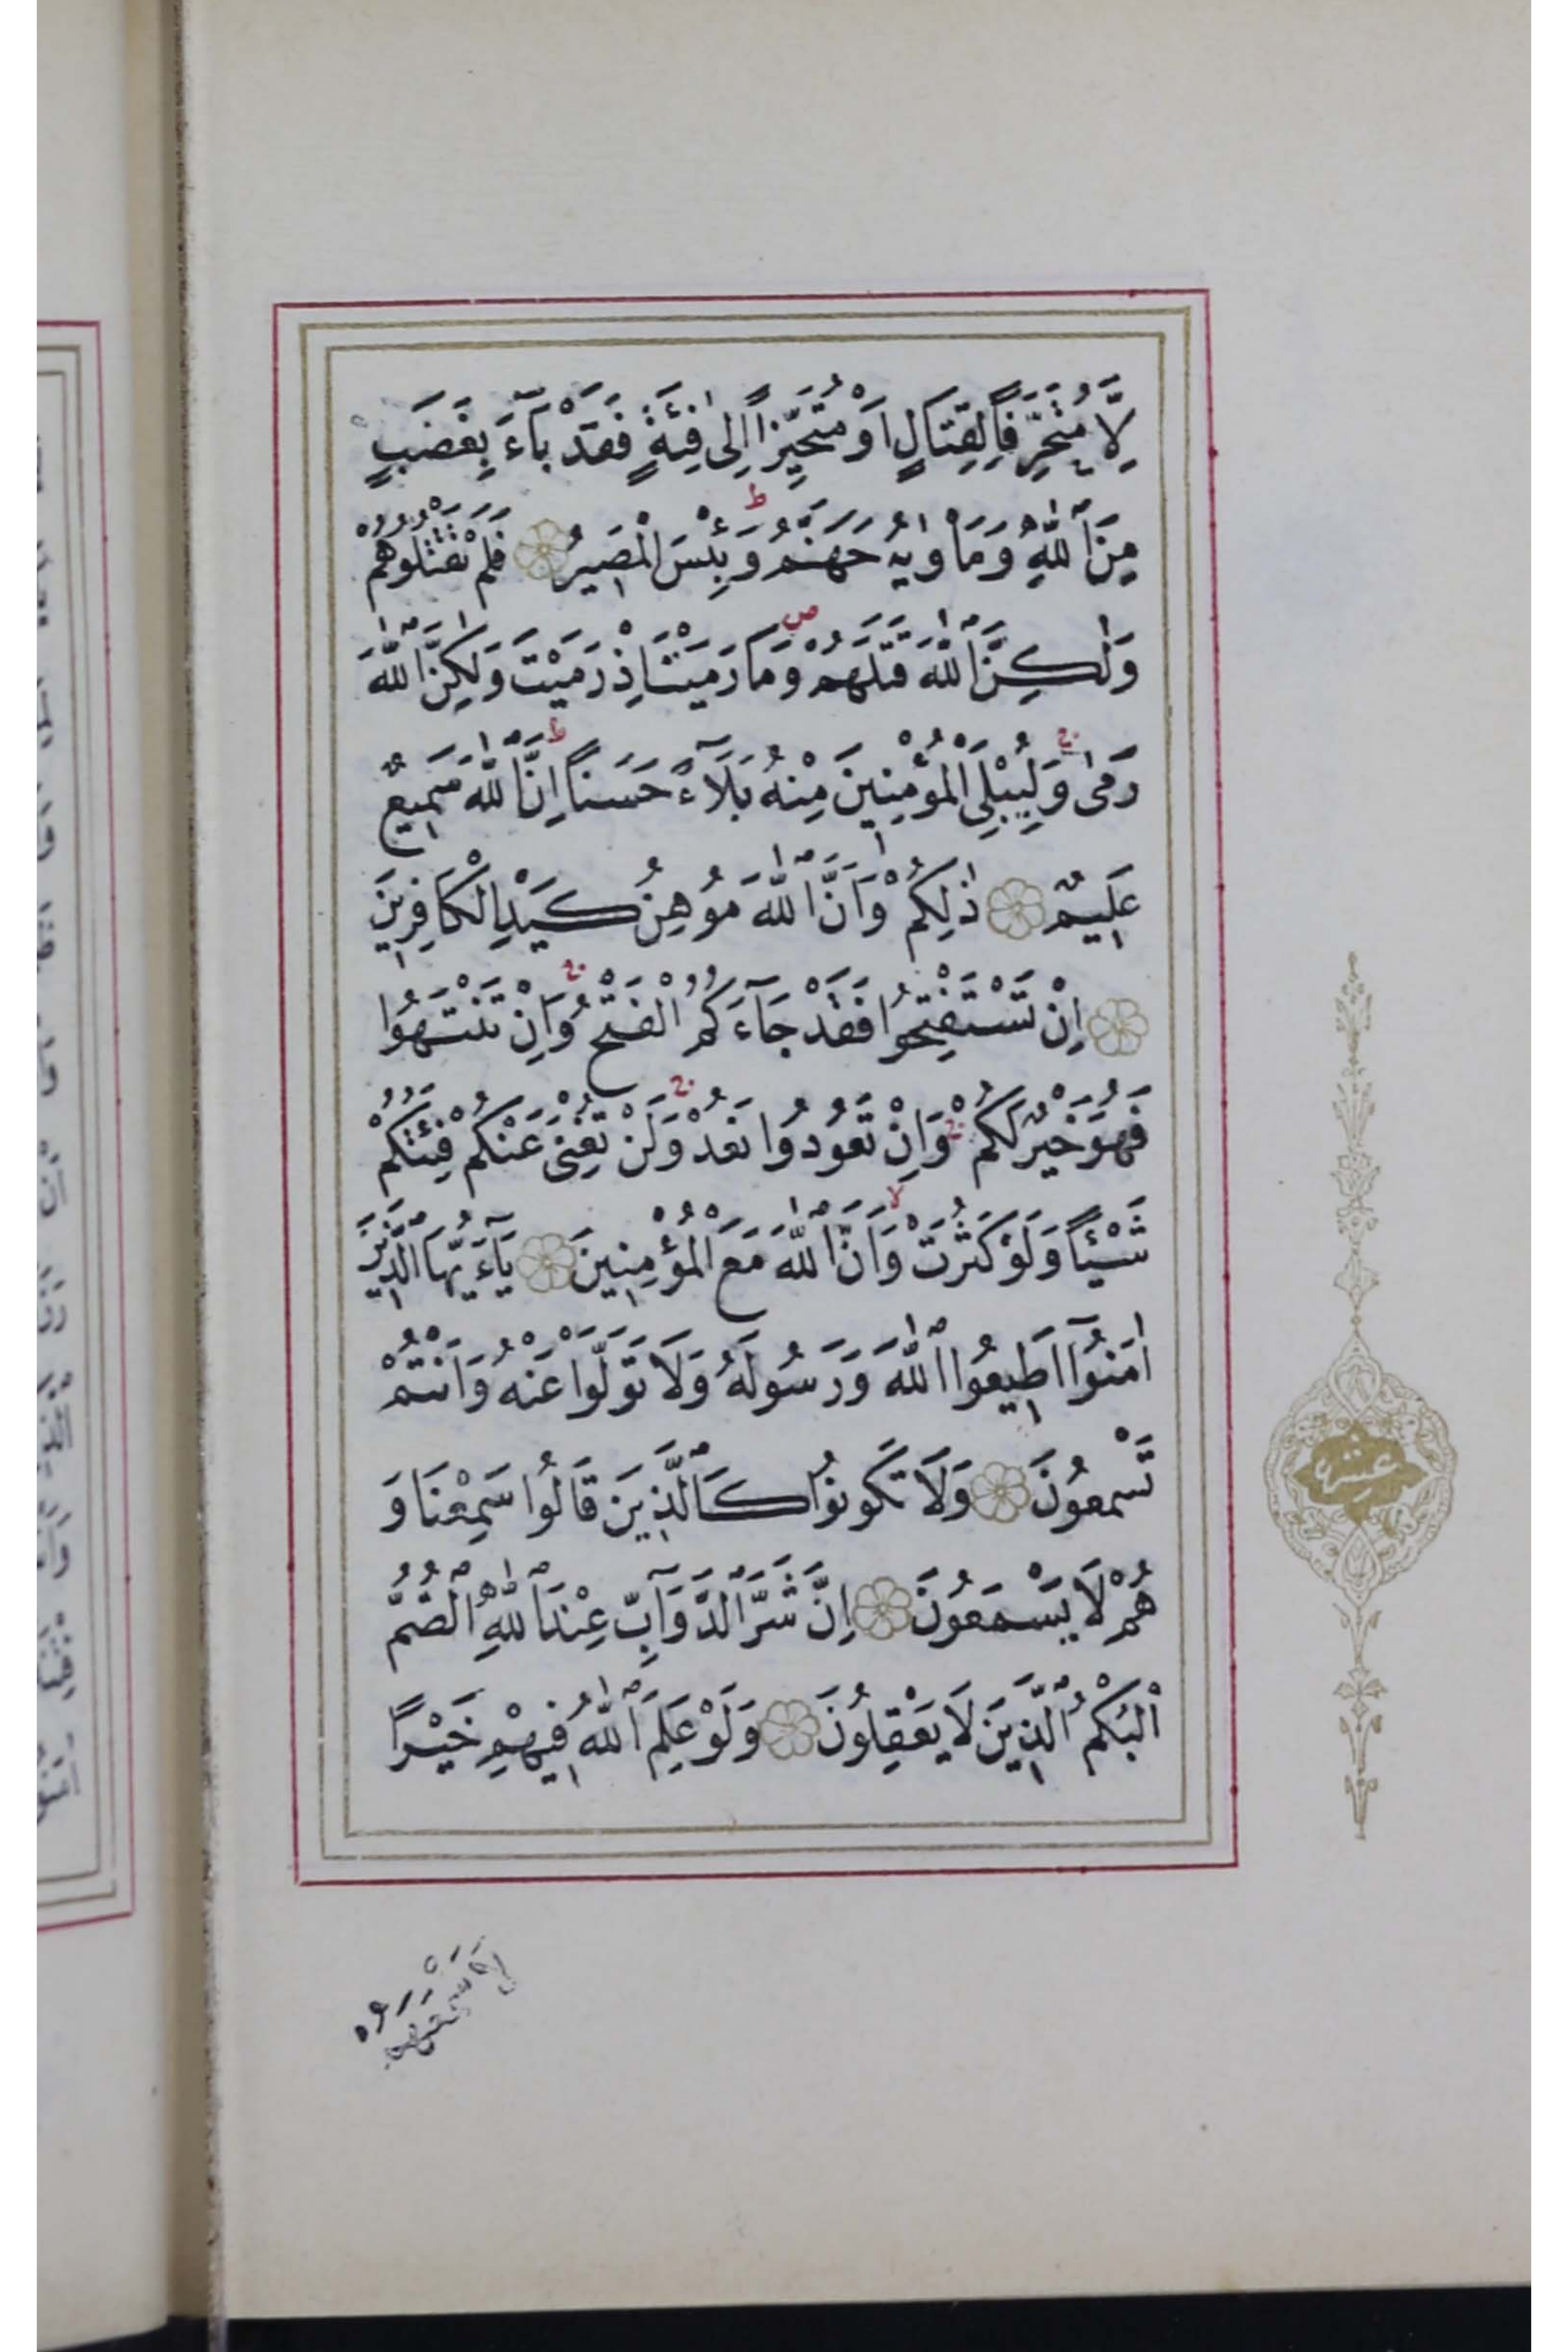 لَّا مُتَحَرِّفًا لِقِتَالٍ اَوْ مُتَحَيِّزًا اِلٰى فِئَةٍ فَقَدْ بَآءَ بِغَضَبٍ
مِنَ ٱللّٰهِ وَمَاْوٰيهُ جَهَنَّمُ ط وَبِئْسَ الْمَصِيرُ فَلَمْ تَقْتُلُوهُمْ
وَلٰكِنَّ ٱللّٰهَ قَتَلَهُمْ ص وَمَا رَمَيْتَ اِذْ رَمَيْتَ وَلٰكِنَّ ٱللّٰهَ
رَمٰى ج وَلِيُبْلِيَ الْمُؤْمِنِينَ مِنْهُ بَلَآءً حَسَنًا ط اِنَّ ٱللّٰهَ سَمِيعٌ
عَلِيمٌ ذٰلِكُمْ وَاَنَّ ٱللّٰهَ مُوهِنُ كَيْدِ الْكَافِرِينَ
اِنْ تَسْتَفْتِحُوا فَقَدْ جَآءَكُمُ الْفَتْحُ ج وَاِنْ تَنْتَهُوا
فَهُوَ خَيْرٌ لَكُمْ ج وَاِنْ تَعُودُوا نَعُدْ ج وَلَنْ تُغْنِىَ عَنْكُمْ فِئَتُكُمْ
شَيْئًا وَلَوْ كَثُرَتْ لا وَاَنَّ ٱللّٰهَ مَعَ الْمُؤْمِنِينَ يَآءَيُّهَا الَّذِينَ
اٰمَنُوٓا اَطِيعُوا ٱللّٰهَ وَرَسُولَهُ وَلَا تَوَلَّوْا عَنْهُ وَاَنْتُمْ
تَسْمَعُونَ وَلَا تَكُونُوا كَٱلَّذِينَ قَالُوا سَمِعْنَا وَ
هُمْ لَا يَسْمَعُونَ اِنَّ شَرَّ ٱلدَّوَآبِّ عِنْدَ ٱللّٰهِ ٱلصُّمُّ
اْلبُكْمُ ٱلَّذِينَ لَا يَعْقِلُونَ وَلَوْ عَلِمَ ٱللّٰهُ فِيهِمْ خَيْرًا
لَاَسْمَعَهُمْ